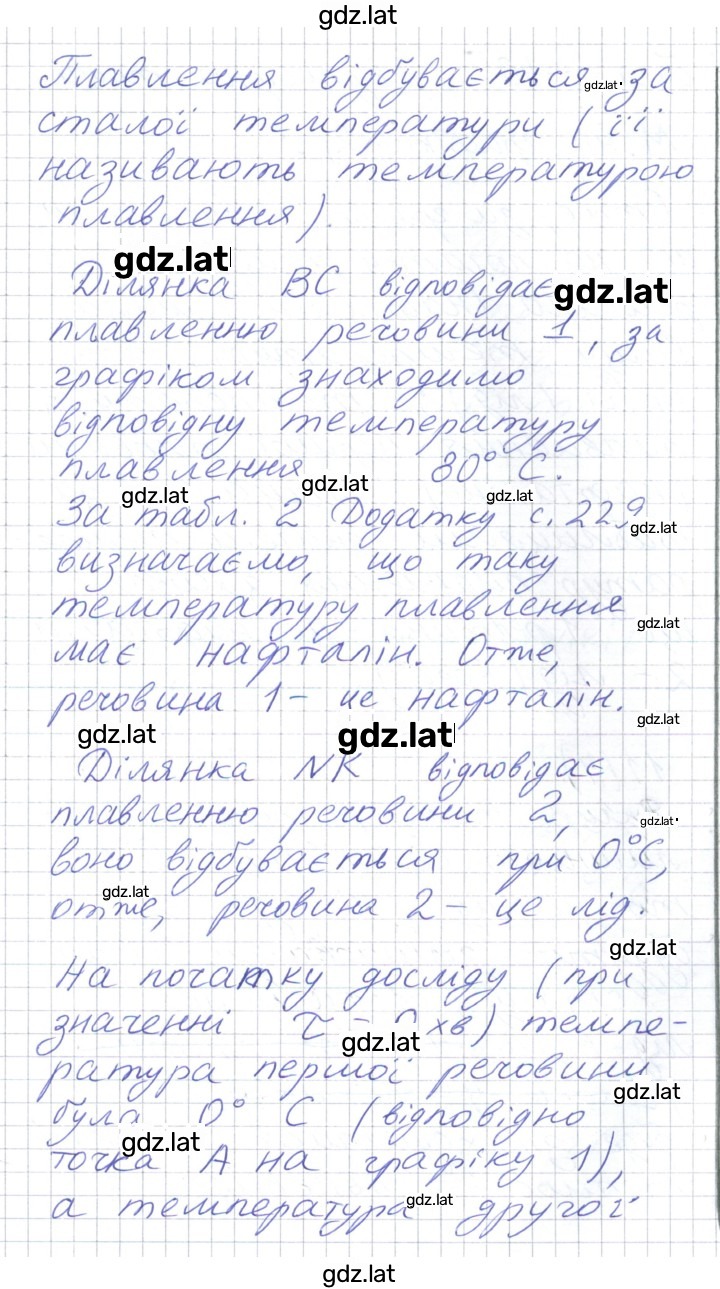 gdz.lat
Плавлення відбувається gdz.lat за
сталої температури (її
називають температурою
плавлення).
gdz.lat
Ділянка ВС відповідає gdz.lat
плавленню речовини 1, за
графіком знаходимо
відповідну температуру
плавлення 80° С.
gdz.lat gdz.lat gdz.lat
За табл. 2 Додатку с. 229
gdz.lat
визначаємо, що таку
температуру плавлення
gdz.lat
має нафталін. Отже,
речовина 1 – це нафталін.
gdz.lat gdz.lat gdz.lat
Ділянка NK відповідає
плавленню речовини 2,
gdz.lat
воно відбувається при 0°С,
gdz.lat
отже, речовина 2 – це лід.
gdz.lat
На початку досліду (при
значенні τ = хв) темпе-
gdz.lat
ратура першої речовини
gdz.lat
була 0° С (відповідно
gdz.lat
точка А на графіку 1),
а температура gdz.lat другої
gdz.lat